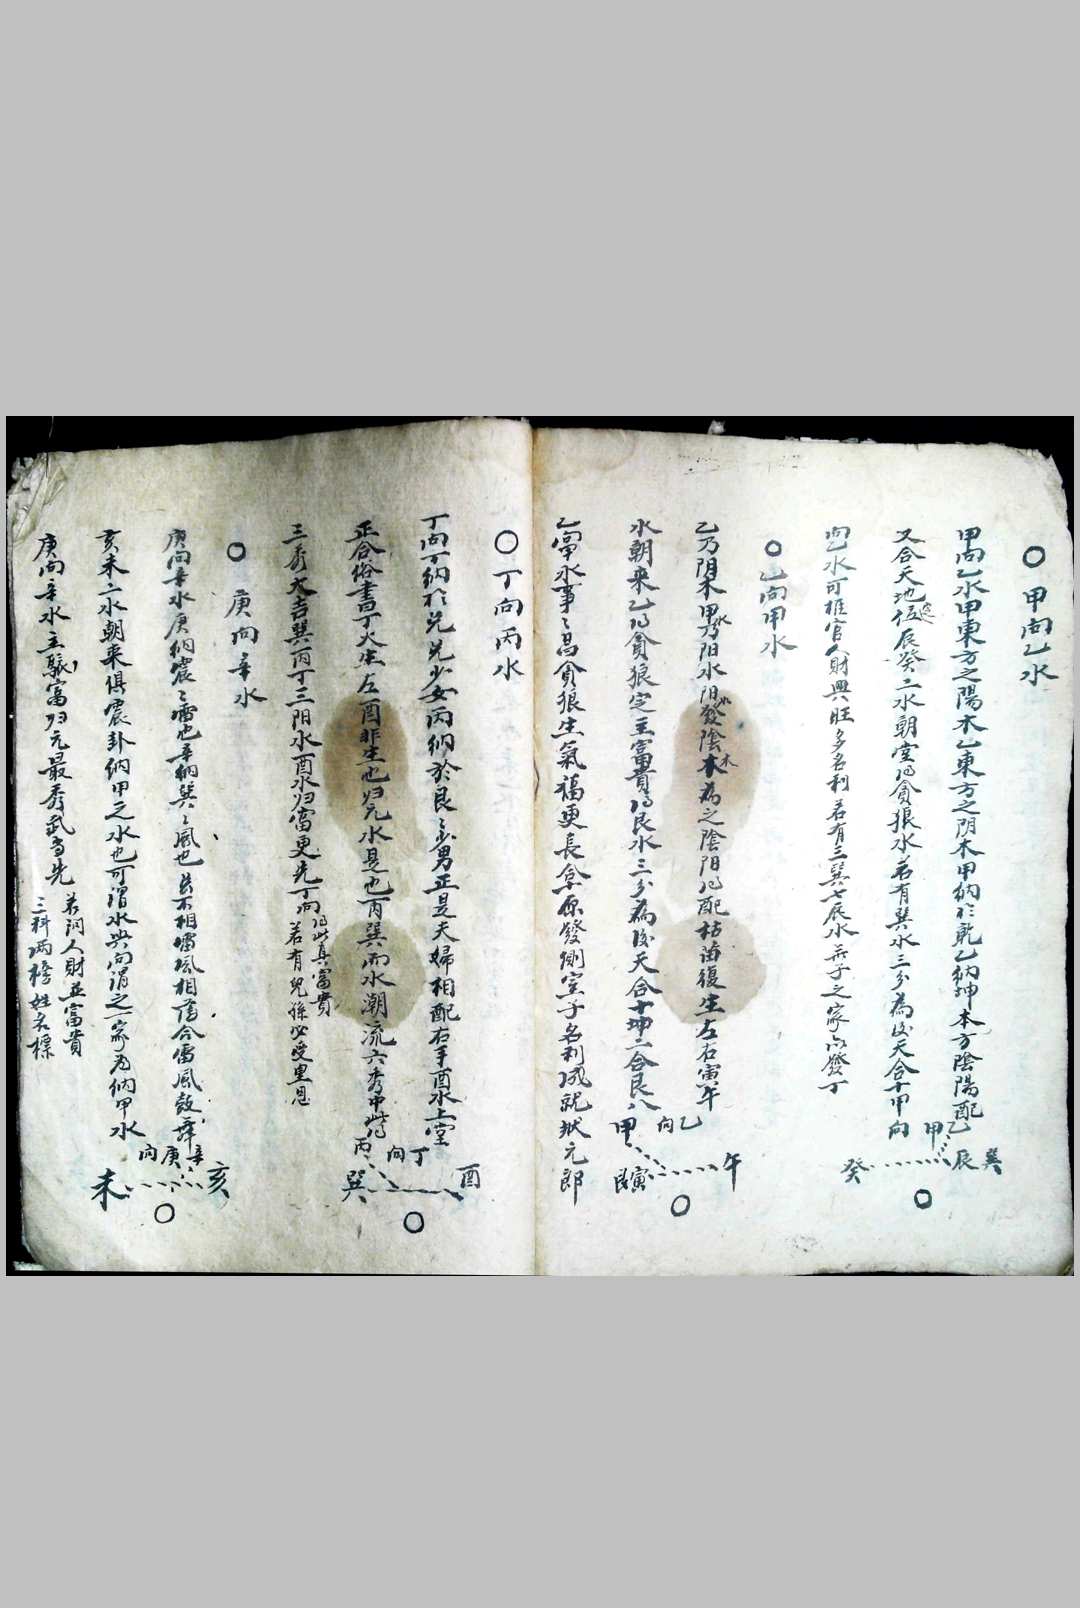 ○甲向乙水
甲向乙水甲東方之陽木乙東方之阴木甲納於乾乙納坤本方陰陽配
又合天地位定辰癸二水朝堂得貪狼水若有巽水三分為後天合十甲向
向乙水可推官人財興旺多名利若有三巽七辰水無子之家必發丁
甲乙
癸 辰巽
○
○乙向甲水
乙乃阴木甲乃阳水阳發陰木為之陰阳得配枯苗復生左右寅午
水朝来乙得貪狼定主富貴得艮水三分為後天合十坤二合艮八
乙向甲水事々昌貪狼生氣福更長 原發 子名利成就狀元郎
甲 向乙
艮寅 午
○
○丁向丙水
丁向丁納於兑兑少女丙納於艮艮少男正是夫婦相配右手酉水上堂
正合俗書丁火生左酉非生也归元水是也丙巽而水潮流六秀中此得
三秀大吉巽丙丁三阳水酉水归富更先丁向得此真富貴
若有兒孫必受皇恩
丙 向丁
巽 酉
○
○庚向辛水
庚向辛水庚納震々雷也辛納巽々風也 不相 風相 合雷風鼓舞
亥未二水朝来俱震卦納甲之水也可謂水與向謂之一家為納甲水
庚向辛水主驟富归元最秀武為先
若问人財並富貴
三科两榜姓名標
向庚辛
未 亥
○